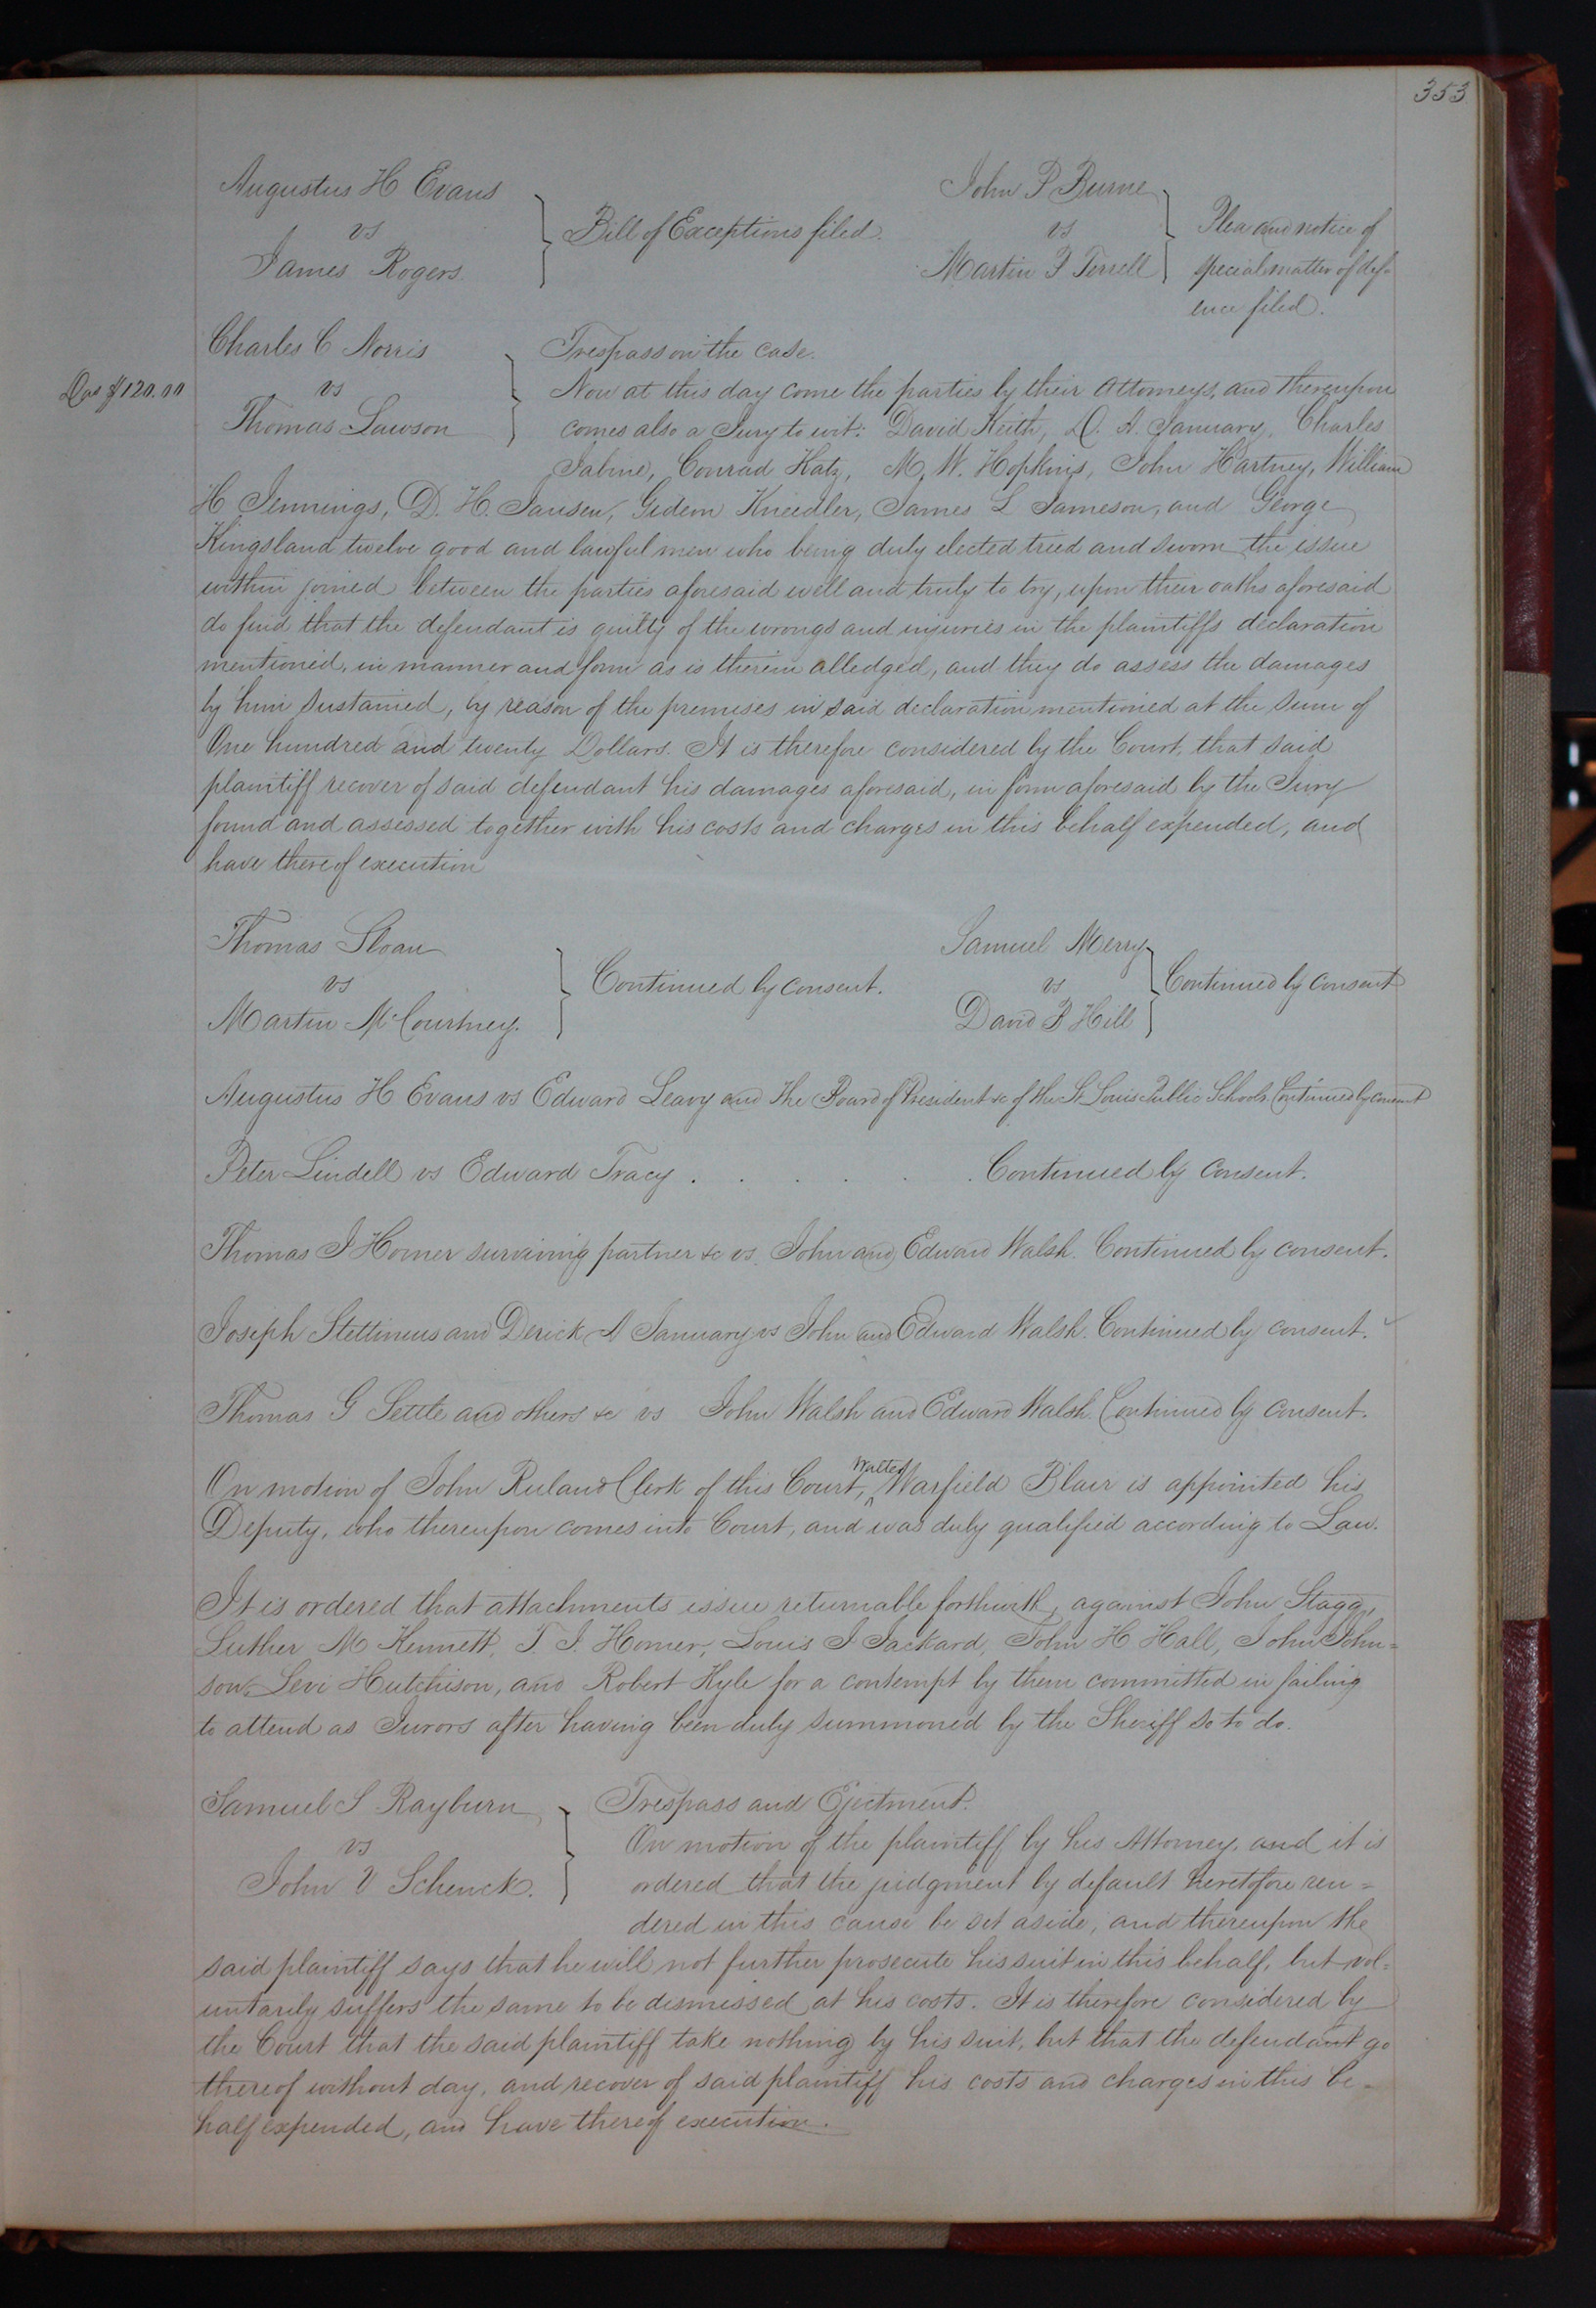 353
Augustus H Evans
vs
James Rogers
Bill of Exceptions filed.
John P Burne
vs
Martin F Terrell
Plea and notice of
special matter of def-
ence filed.
Charles C Norris
vs
Thomas Lawson
Das $120.00
Trespass on the case.
Now at this day come the parties by their Attorneys, and thereupon
comes also a Jury to wit: David Keith, D. A. January, Charles
Sabine, Conrad Katz, M. W. Hopkins, John Hartney, William
H Jennings, D. H. Jansen, Gideon Kneedler, James L Jameson, and George
Kingsland twelve good and lawful men who being duly elected tried and sworn the issue
within joined between the parties aforesaid well and truly to try, upon their oaths aforesaid
do find that the defendant is guilty of the wrongs and injuries in the plaintiffs declaration
mentioned, in manner and form as is therein alledged, and they do assess the damages
by him sustained, by reason of the premises in said declaration mentioned at the sum of
One hundred and twenty Dollars. It is therefore considered by the Court, that said
plaintiff recover of said defendant his damages aforesaid, in form aforesaid by the Jury
found and assessed together with his costs and charges in this behalf expended, and
have thereof execution
Thomas Sloan
vs
Martin McCourtney.
Continued by consent.
Samuel Merry
vs
David P Hill
Continued by consent
Augustus H Evans vs Edward Leavy and the Board of President &c of the St Louis Public Schools Continued by consent
Peter Lindell vs Edward Tracy . . . . . . Continued by consent.
Thomas J Homer surviving partner &c vs. John and Edward Walsh. Continued by consent.
Joseph Stettineus and Derick A January vs John and Edward Walsh. Continued by consent.
Thomas G Settle and others &c vs John Walsh and Edward Walsh. Continued by consent.
On motion of John Ruland Clerk of this Court, Walter Warfield Blair is appointed his
Deputy, who thereupon comes into Court, and was duly qualified according to Law.
It is ordered that attachments issue returnable forthwith, against John Stagg,
Luther M Kennett, T. J. Homer, Louis J Jackard, John H Hall, John John=
son, Levi Hutchison, and Robert Kyle for a contempt by them committed in failing
to attend as Jurors after having been duly summoned by the Sheriff so to do.
Samuel S Rayburn
vs
John V Schenck.
Trespass and Ejectment.
On motion of the plaintiff by his Attorney, and it is
ordered that the judgment by default heretofore ren=
dered in this cause be set aside, and thereupon the
said plaintiff says that he will not further prosecute his suit in this behalf, but vol=
untarily suffers the same to be dismissed at his costs. It is therefore considered by
the Court that the said plaintiff take nothing by his suit, but that the defendant go
thereof without day, and recover of said plaintiff his costs and charges in this be-
half expended, and have thereof execution.